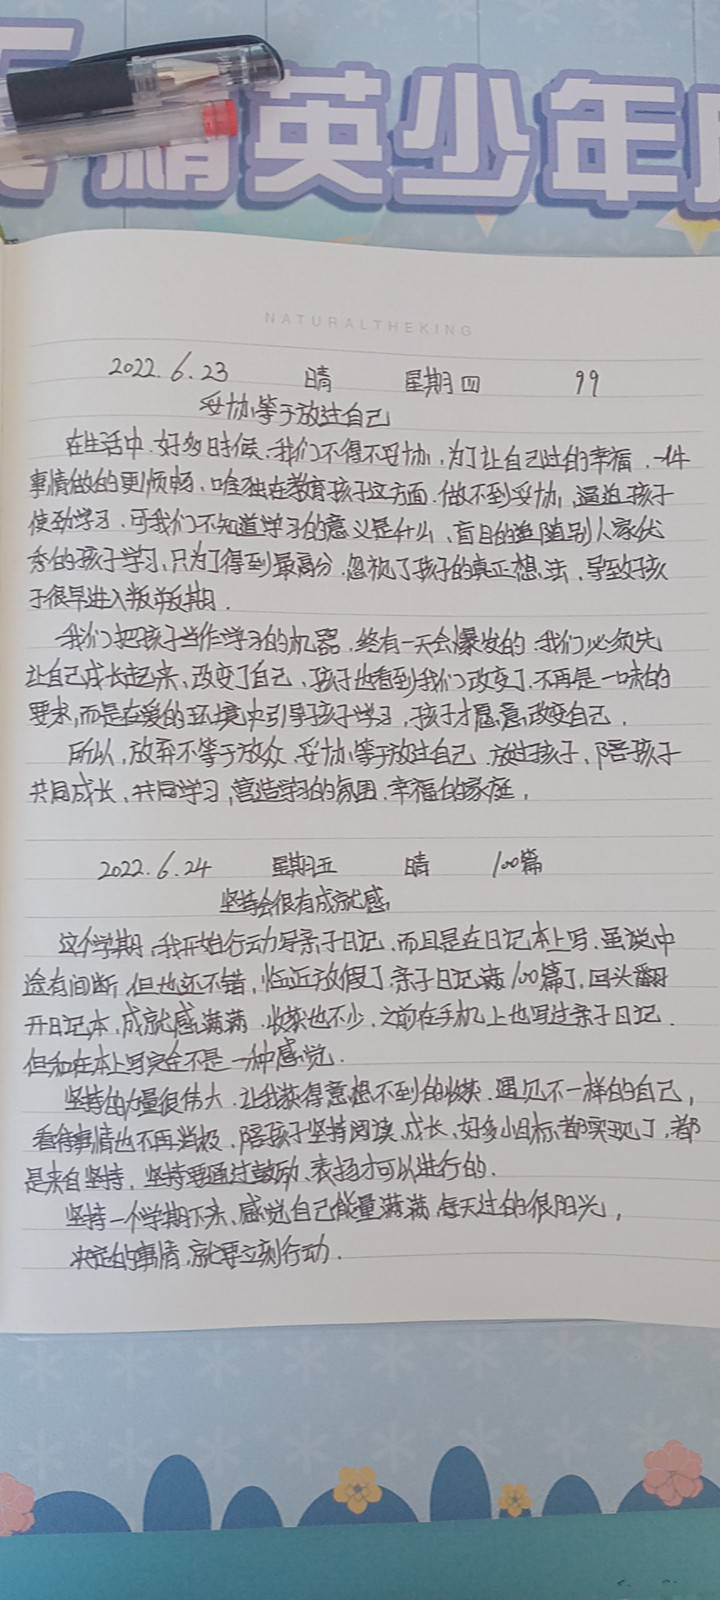 精英少年
NATURALTHEKING
2022.6.23 晴 星期四 99
妥协等于放过自己
在生活中,好多时候,我们不得不妥协,为了让自己过的幸福,一件
事情做的更顺畅,唯独在教育孩子这方面,做不到妥协,逼迫孩子
使劲学习,可我们不知道学习的意义是什么,盲目的追随别人家优
秀的孩子学习,只为了得到最高分,忽视了孩子的真正想法,导致好孩
子很早进入叛逆期.
我们把孩子当作学习的机器,终有一天会爆发的,我们必须先
让自己成长起来,改变了自己,孩子也看到我们改变了,不再是一味的
要求,而是在爱的环境中引导孩子学习,孩子才愿意改变自己.
所以,放弃不等于放众,妥协等于放过自己,放过孩子,陪孩子
共同成长,共同学习,营造学习的氛围,幸福的家庭,
2022.6.24 星期五 晴 100篇
坚持会很有成就感
这个学期,我开始行动写亲子日记,而且是在日记本上写,虽说中
途有间断,但也还不错,临近放假了,亲子日记满100篇了,回头翻
开日记本,成就感满满,收获也不少,之前在手机上也写过亲子日记.
但和在本上写完全不是一种感觉.
坚持的力量很伟大,让我获得意想不到的收获,遇见不一样的自己,
看待事情也不再消极,陪孩子坚持阅读,成长,好多小目标都实现了,都
是来自坚持,坚持要通过鼓励、表扬才可以进行的.
坚持一个学期下来,感觉自己能量满满,每天过的很阳光,
决定的事情,就要立刻行动.